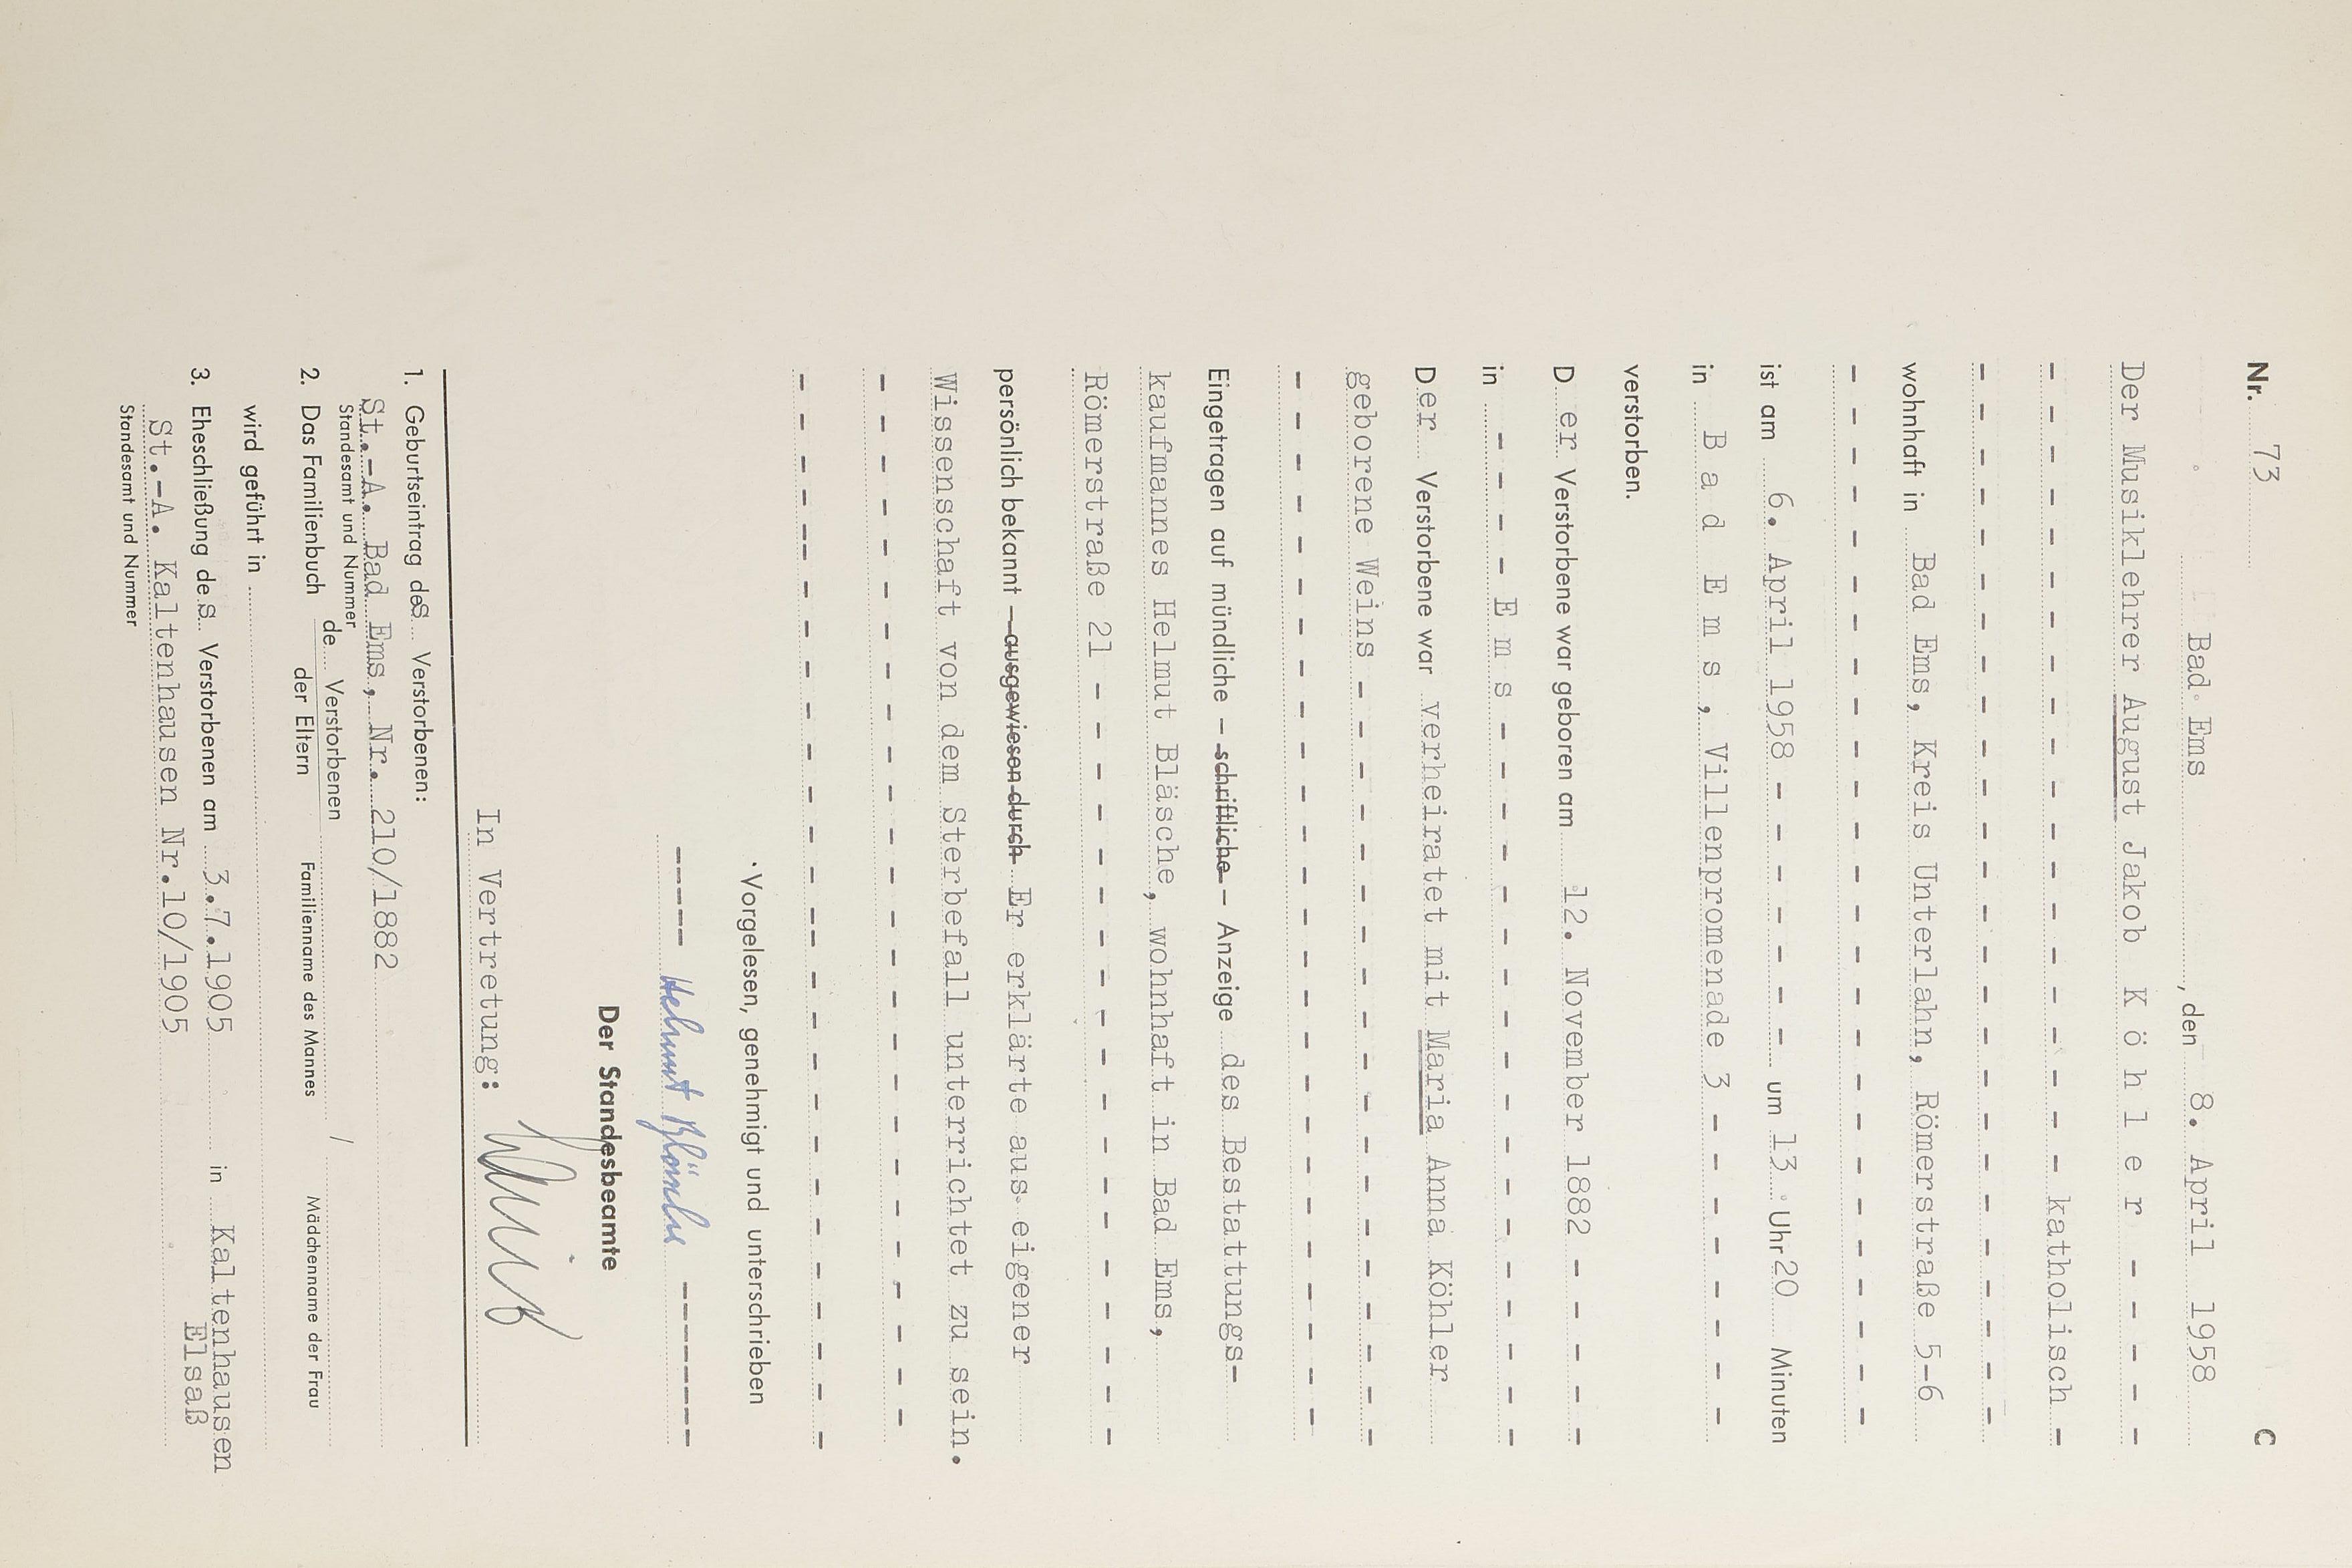 Nr. 73 C
Bad Ems, den 8. April 1958
Der Musiklehrer August Jakob K ö h l e r - - - -
- - - - - - - - - - - - - - - - katholisch -
- - - - - - - - - - - - - - - - - - - -
wohnhaft in Bad Ems, Kreis Unterlahn, Römerstraße 5-6
- - - - - - - - - - - - - - - - - - - -
ist am 6. April 1958 - - - - - um 13 Uhr 20 Minuten
in B a d E m s , Villenpromenade 3 - - - - - -
verstorben.
D er Verstorbene war geboren am 12. November 1882 - - - -
in - - - - E m s - - - - - - - - - - - - -
Der Verstorbene war verheiratet mit Maria Anna Köhler
geborene Weins - - - - - - - - - - - - - -
- - - - - - - - - - - - - - - - - - - -
Eingetragen auf mündliche – schriftliche – Anzeige des Bestattungs-
kaufmannes Helmut Bläsche, wohnhaft in Bad Ems,
Römerstraße 21 - - - - - - - - - - - - -
persönlich bekannt – ausgewiesen durch Er erklärte aus eigener
Wissenschaft von dem Sterbefall unterrichtet zu sein.
- - - - - - - - - - - - - - - - - - - -
- - - - - - - - - - - - - - - - - - - -
Vorgelesen, genehmigt und unterschrieben
----- Helmut Bläsche --------
Der Standesbeamte
In Vertretung:
1. Geburtseintrag des Verstorbenen:
St.-A. Bad Ems, Nr. 210/1882
Standesamt und Nummer
2. Das Familienbuch de Verstorbenen /
der Eltern Familienname des Mannes Mädchenname der Frau
wird geführt in
3. Eheschließung des Verstorbenen am 3.7.1905 in Kaltenhausen
Elsaß
St.-A. Kaltenhausen Nr.10/1905
Standesamt und Nummer